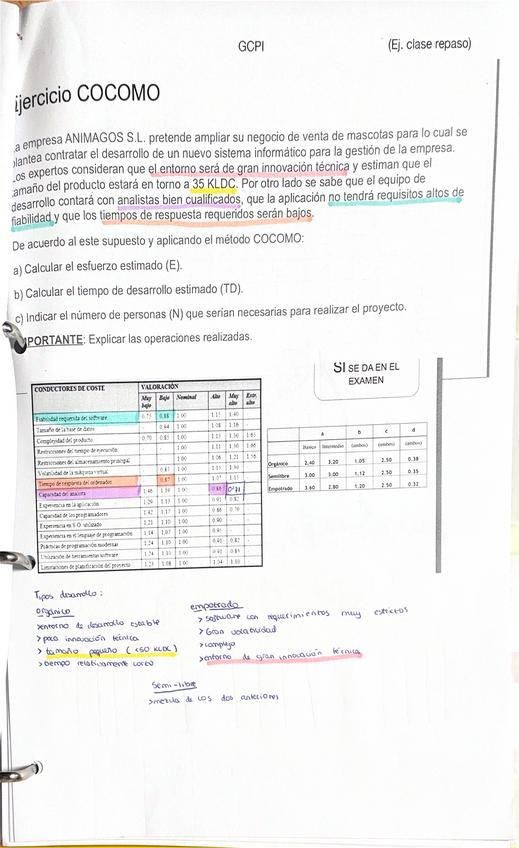 GCPI
(Ej. clase repaso)
jercicio COCOMO
a empresa ANIMAGOS S.L. pretende ampliar su negocio de venta de mascotas para lo cual se
plantea contratar el desarrollo de un nuevo sistema informático para la gestión de la empresa.
Los expertos consideran que el entorno será de gran innovación técnica y estiman que el
amaño del producto estará en torno a 35 KLDC. Por otro lado se sabe que el equipo de
desarrollo contará con analistas bien cualificados, que la aplicación no tendrá requisitos altos de
fiabilidad y que los tiempos de respuesta requeridos serán bajos.
De acuerdo al este supuesto y aplicando el método COCOMO:
a) Calcular el esfuerzo estimado (E).
b) Calcular el tiempo de desarrollo estimado (TD).
c) Indicar el número de personas (N) que serían necesarias para realizar el proyecto.
PORTANTE: Explicar las operaciones realizadas.
SI SE DA EN EL
EXAMEN
CONDUCTORES DE COSTE VALORACIÓN
Muy bajo Bajo Nominal Alto Muy alto Extr. alto
Fiabilidad requerida del software 0.75 0.88 1.00 1.15 1.40
Tamaño de la base de datos 0.94 1.00 1.08 1.16
Complejidad del producto 0.70 0.85 1.00 1.15 1.30 1.65
Restricciones del tiempo de ejecución 1.00 1.11 1.30 1.66
Restricciones del almacenamiento principal 1.00 1.06 1.21 1.56
Volatilidad de la máquina virtual 0.87 1.00 1.15 1.30
Tiempo de respuesta del ordenador 0.87 1.00 1.07 1.15
Capacidad del analista 1.46 1.19 1.00 0.86 0'71
Experiencia en la aplicación 1.29 1.13 1.00 0.91 0.82
Capacidad de los programadores 1.42 1.17 1.00 0.86 0.70
Experiencia en S.O. utilizado 1.21 1.10 1.00 0.90
Experiencia en el lenguaje de programación 1.14 1.07 1.00 0.95
Prácticas de programación modernas 1.24 1.10 1.00 0.91 0.82
Utilización de herramientas software 1.24 1.10 1.00 0.91 0.83
Limitaciones de planificación del proyecto 1.23 1.08 1.00 1.04 1.10
a b c d
Básico Intermedio (ambos) (ambos) (ambos)
Orgánico 2,40 3,20 1.05 2.50 0.38
Semilibre 3.00 3.00 1.12 2.50 0.35
Empotrado 3.60 2.80 1.20 2.50 0.32
Tipos desarrollo:
orgánico
>entorno de desarrollo estable
> poca innovación técnica
> tamaño pequeño (<50 KLDC)
>tiempo relativamente corto
empotrado
> software con requerimientos muy estrictos
> Gran volatilidad
>complejo
>entorno de gran innovación técnica
Semi-libre
>mezcla de los dos anteriores